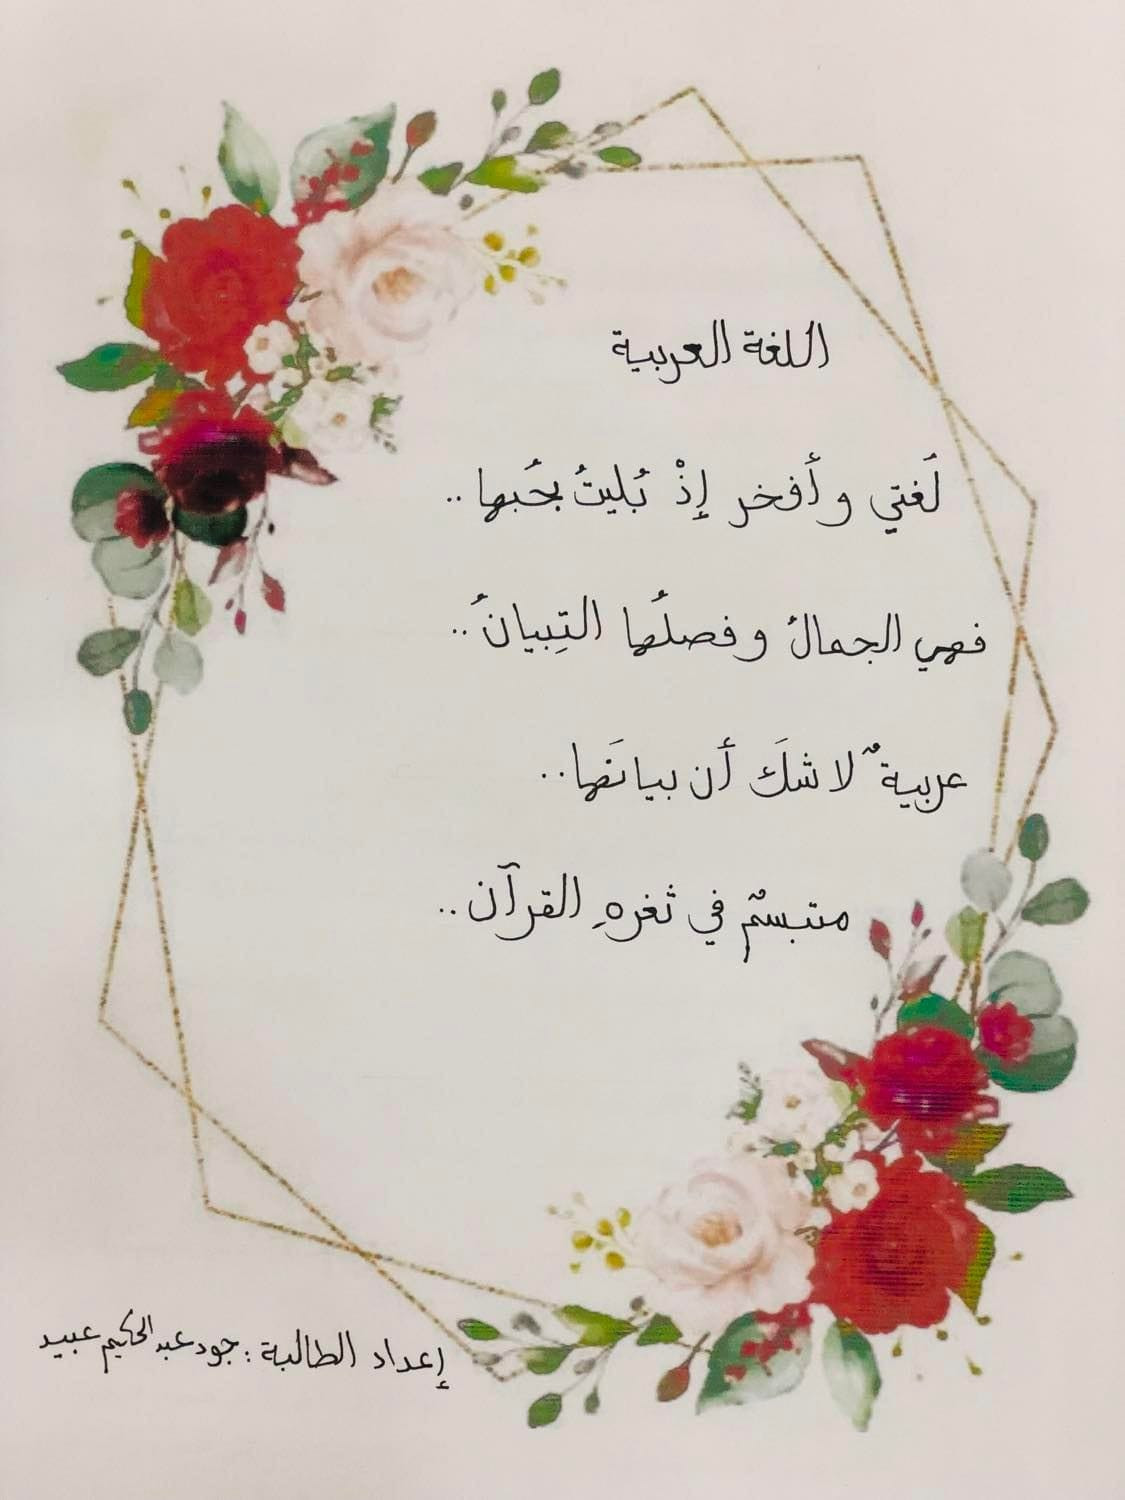 اللغة العربية
لَغتي وأفخر إذْ بُليتُ بحُبها ..
فهي الجمالُ وفصلُها التِبيانُ ..
عربيةٌ لا شكَ أن بيانَها ..
متبسمٌ في ثغرهِ القرآن ..
إعداد الطالبة : جود عبد الحكيم عبيد